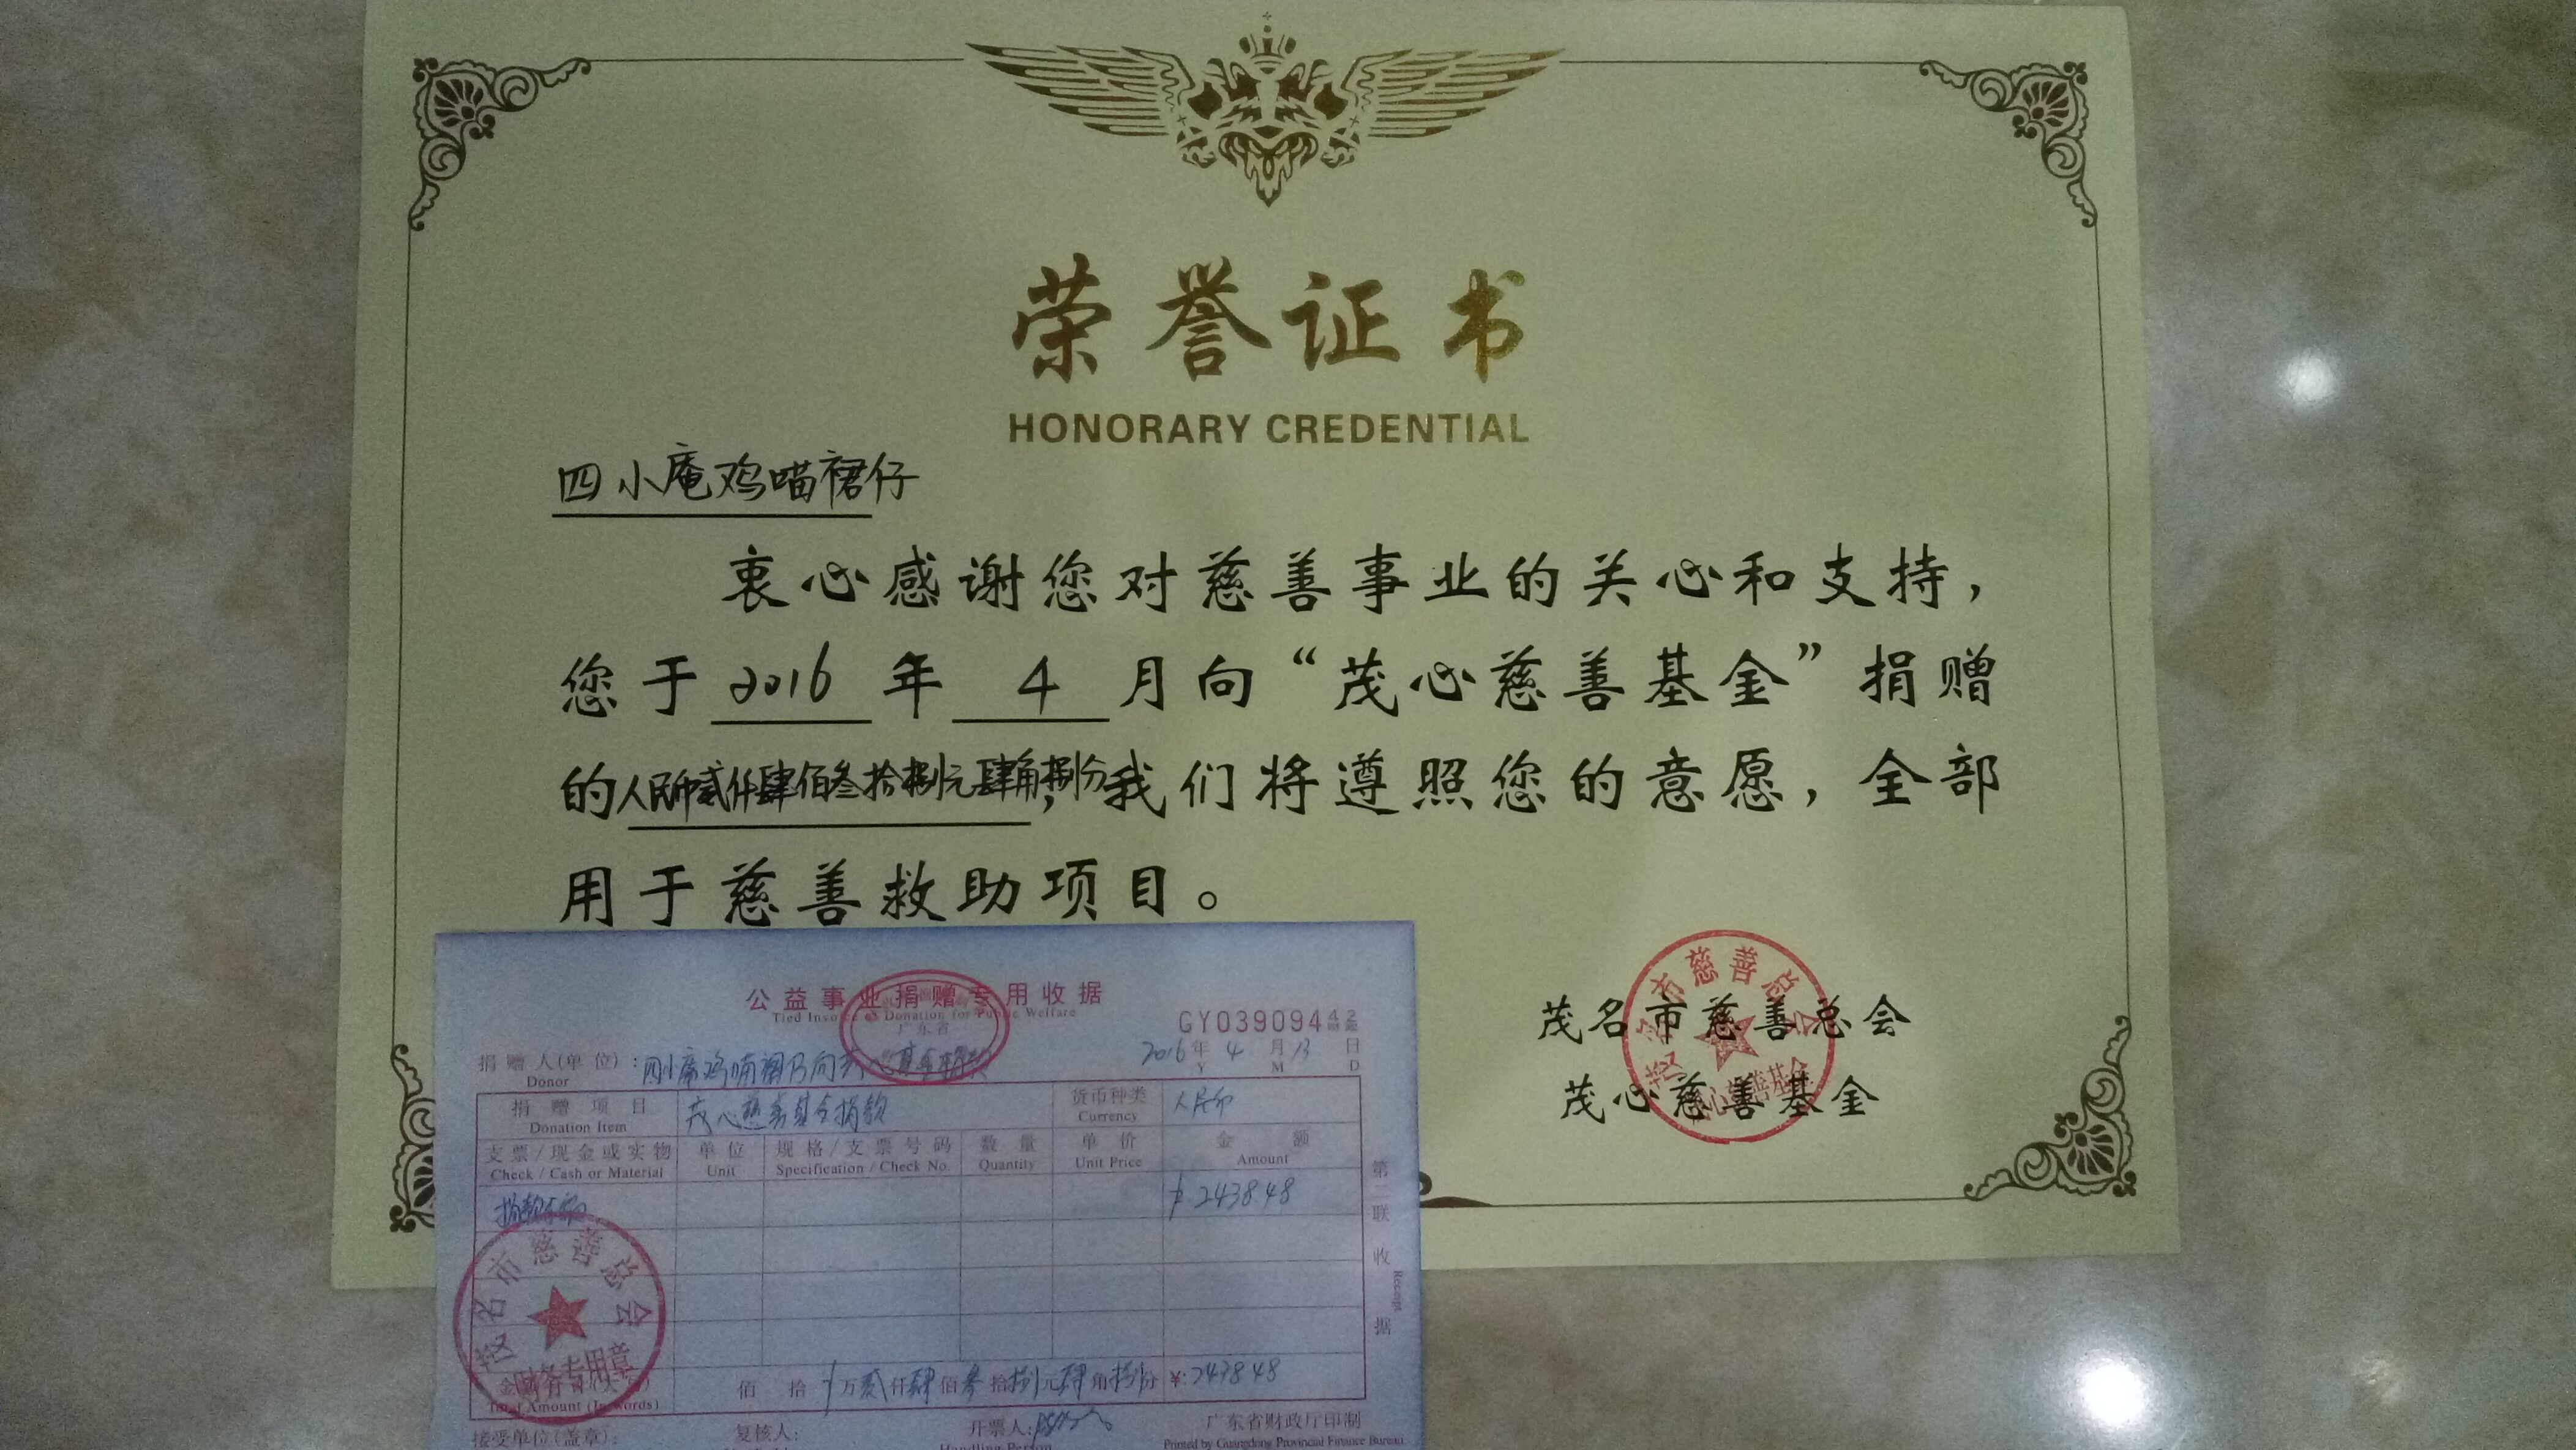 荣誉证书
HONORARY CREDENTIAL
四小庵鸡喵裙仔
衷心感谢您对慈善事业的关心和支持，
您于 2016 年 4 月向“茂心慈善基金”捐赠
的人民币贰仟肆佰叁拾捌元肆角捌分，我们将遵照您的意愿，全部
用于慈善救助项目。
茂名市慈善总会
茂心慈善基金
茂名市慈善总会
公益事业捐赠专用收据
Tied Invoice of Donation for Public Welfare
广东省
GY03909442
2016年 4 月 13 日
Y M D
捐赠人(单位)：四小庵鸡喵裙仔向茂心基金捐款
Donor
捐赠项目 茂心慈善基金捐款 货币种类 人民币
Donation Item Currency
支票/现金或实物 单位 规格/支票号码 数量 单价 金额
Check / Cash or Material Unit Specification / Check No. Quantity Unit Price Amount
捐款 ¥2438.48
第二联 收据
Receipt
茂名市慈善总会
财务专用章
佰 拾 万贰仟肆佰叁拾捌元肆角捌分 ¥:2438.48
Total Amount (In words)
接受单位(盖章)： 复核人： 开票人： 广东省财政厅印制
Handling Person Printed by Guangdong Provincial Finance Bureau